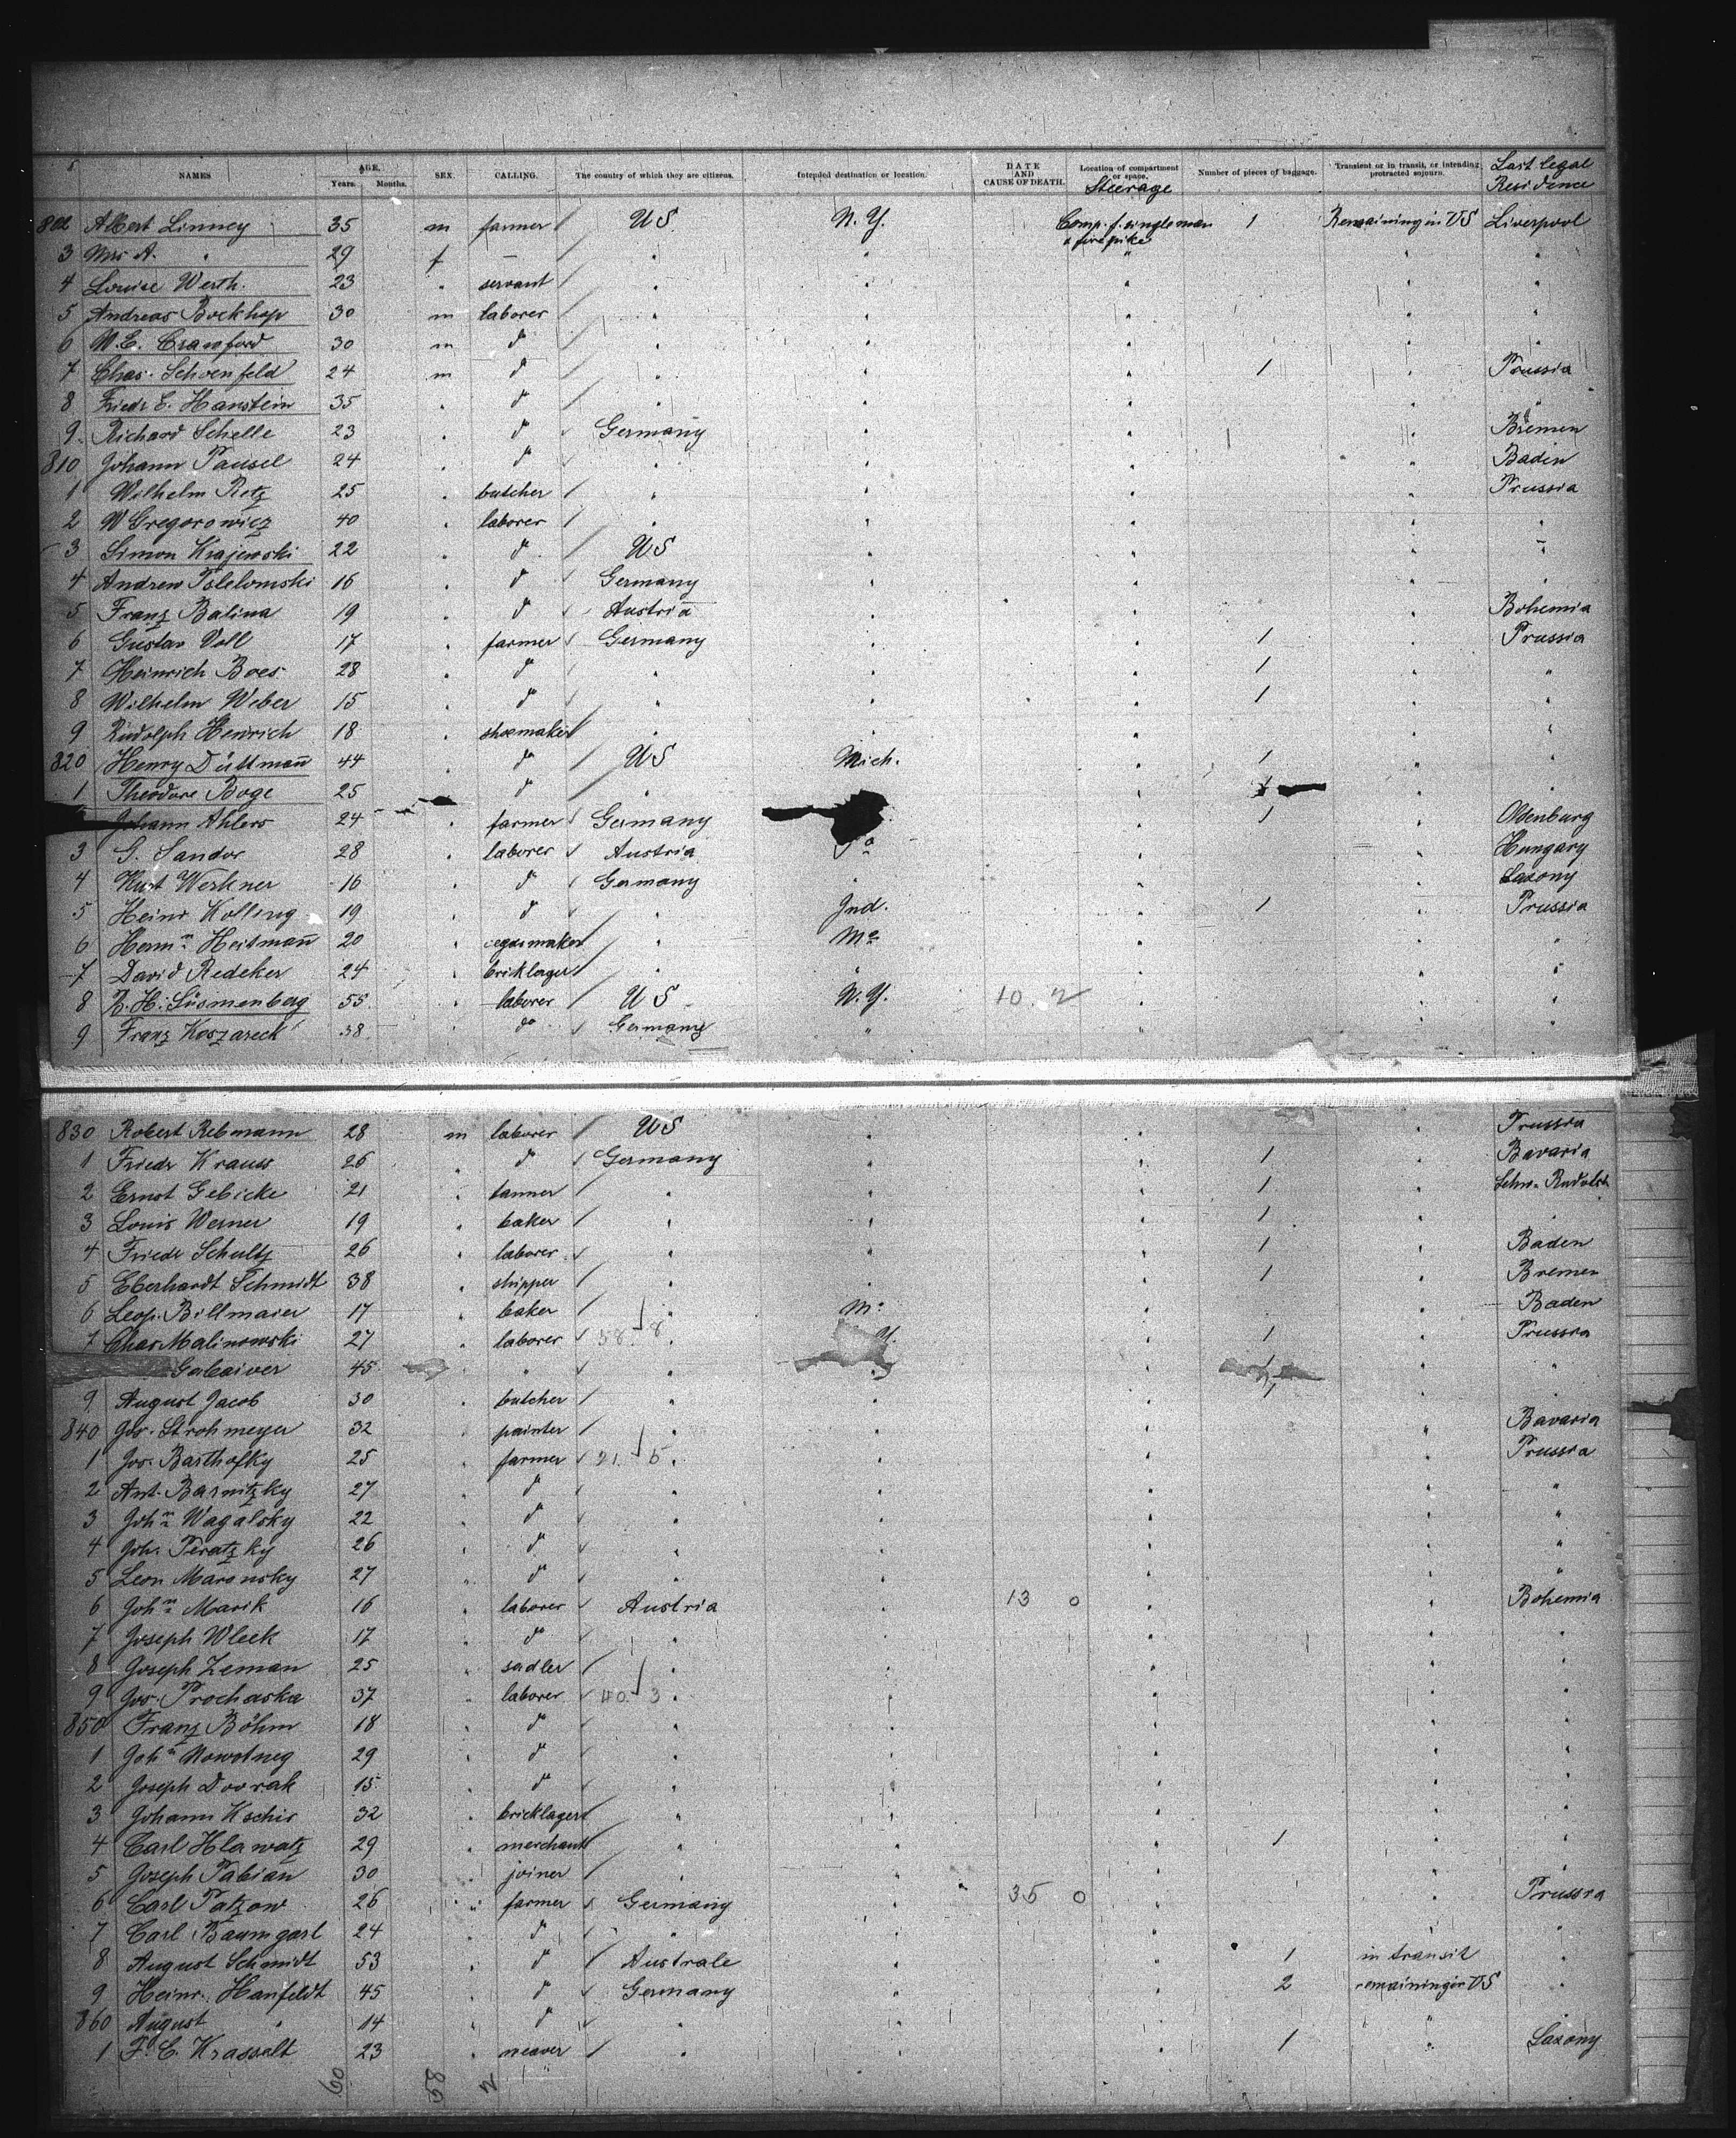 NAMES AGE. Years. Months. SEX. CALLING. The country of which they are citizens. Intended destination or location. DATE AND CAUSE OF DEATH. Location of compartment or space. Steerage Number of pieces of baggage. Transient or in transit, or intending protracted sojourn. Last legal Residence
802 Albert Linney 35 m farmer / US N.Y. Comp. f. single men 1 Remaining in US Liverpool
3 Mrs A. " 29 f — / " " " " "
4 Louise Werth. 23 " servant / " " " " "
5 Andreas Bockhop 30 m laborer / " " " " "
6 W.E. Crawford 30 m do / " " " " "
7 Chas. Schoenfeld 24 m do / " " " 1 " Prussia
8 Friedr E. Hanstein 35 " do / " " " " "
9. Richard Schelle 23 " do ✓ Germany " " 1 " Bremen
810 Johann Pausel 24 " do ✓ " " " " Baden
1 Wilhelm Retz 25 " butcher / " " " " Prussia
2 W Gregorowicz 40 " laborer / " " " " "
3 Simon Krajewski 22 " do ✓ US " " " "
4 Andrew 16 " do ✓ Germany " " " "
5 Franz Balina 19 " do ✓ Austria " " " Bohemia
6 Gustav Voll 17 " farmer ✓ Germany " " 1 " Prussia
7 Heinrich Boes 28 " do ✓ " " " 1 " "
8 Wilhelm Weber 15 " do ✓ " " " 1 " "
9 Rudolph Heinrich 18 " shoemaker / " " " " "
820 Henry Düttmann 44 " do / US Mich. " 1 " "
1 Theodore Boge 25 " do / " " 1 " "
Johann Ahlers 24 " farmer ✓ Germany " 1 " Oldenburg
3 G. Sandor 28 " laborer ✓ Austria " " Hungary
4 Kurt Werkner 16 " do ✓ Germany " " " Saxony
5 Heinr Kolling 19 " do ✓ " Ind. " 1 " Prussia
6 Hermn. Heitmann 20 " cegarmaker / " Mo " " "
7 David Redeker 24 " bricklager / " " " " "
8 Süsmenberg 55 " laborer / US N.Y. 10. 2 " " "
9 Franz Koszareck 38 " do ✓ Germany " " " "
830 Robert Rebmann 28 m laborer / US " " " Prussia
1 Friedr Krauss 26 " do ✓ Germany " " 1 " Bavaria
2 Ernst Gebicke 21 " tanner / " " " 1 " Schw. Rudolst
3 Louis Werner 19 " baker / " " " 1 " "
4 Friedr Schultz 26 " laborer ✓ " " " 1 " Baden
5 Eberhardt Schmidt 38 " shipper / " " " 1 " Bremen
6 Leop. Billmaier 17 " baker / " Mo " " Baden
7 Chas Malinowski 27 " laborer ✓ 58 8 " Y. " 1 " Prussia
Gabaiver 45 " ✓ " " " 1 " "
9 August Jacob 30 " butcher / " " " 1 " "
840 Jos. Strohmeyer 32 " painter / " " " " Bavaria
1 Jos. Barthofky 25 " farmer ✓ 21 5 " " " " Prussia
2 Ant. Barnitzky 27 " do ✓ " " " " "
3 John Wagalsky 22 " do ✓ " " " " "
4 Joh. Peratzky 26 " do ✓ " " " " "
5 Leon Maronsky 27 " do ✓ " " " " "
6 John Marik 16 " laborer ✓ Austria " 13 0 " " Bohemia
7 Joseph Wleck 17 " do ✓ " " " " "
8 Joseph Zeman 25 " sadler / " " " " "
9 Jos. Prochaska 37 " laborer ✓ 40 3 " " " " "
850 Franz Böhm 18 " do ✓ " " " " "
1 John Nowotneg 29 " do ✓ " " " " "
2 Joseph Dvorak 15 " do ✓ " " " " "
3 Johann Kschir 32 " bricklager / " " " " "
4 Carl Hlawatz 29 " merchant / " " " 1 " "
5 Joseph Fabian 30 " joiner / " " " " "
6 Carl Patzow 26 " farmer ✓ Germany " 35 0 " " Prussia
7 Carl Baumgarl 24 " do ✓ " " " " "
8 August Schmidt 53 " do / Australe " " 1 in transit "
9 Heinr. Hanfeldt 45 " do ✓ Germany " " 2 remaining in US "
860 August " 14 " do ✓ " " " " "
1 F. C. Krasselt 23 " weaver / " " " 1 " Saxony
60 58 2